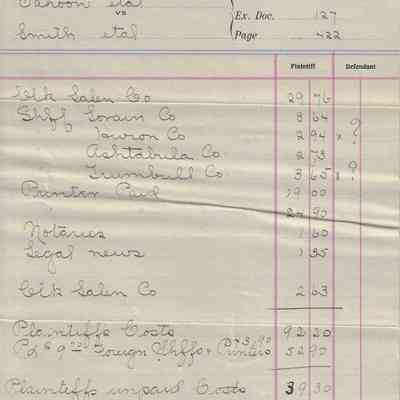 Cahoon etal
vs
Ex. Doc. 127
Smith etal
Page 422
Plaintiff Defendant
Clk Salen Co 29 76
Shff Lorain Co 8 64
Lowron Co 2 94 x ?
Ashtabula Co 2 73
Trumbull Co 3 65 x ?
Printer Paid 19 00
24 90
Notaries 1 60
Legal news 1 35
Clk Salen Co 2 63
Plaintiffs Costs 92 20
Pd $ 9.00 Foreign Shffs + Printers 43.90 52 90
Plaintiffs unpaid Costs 39 30